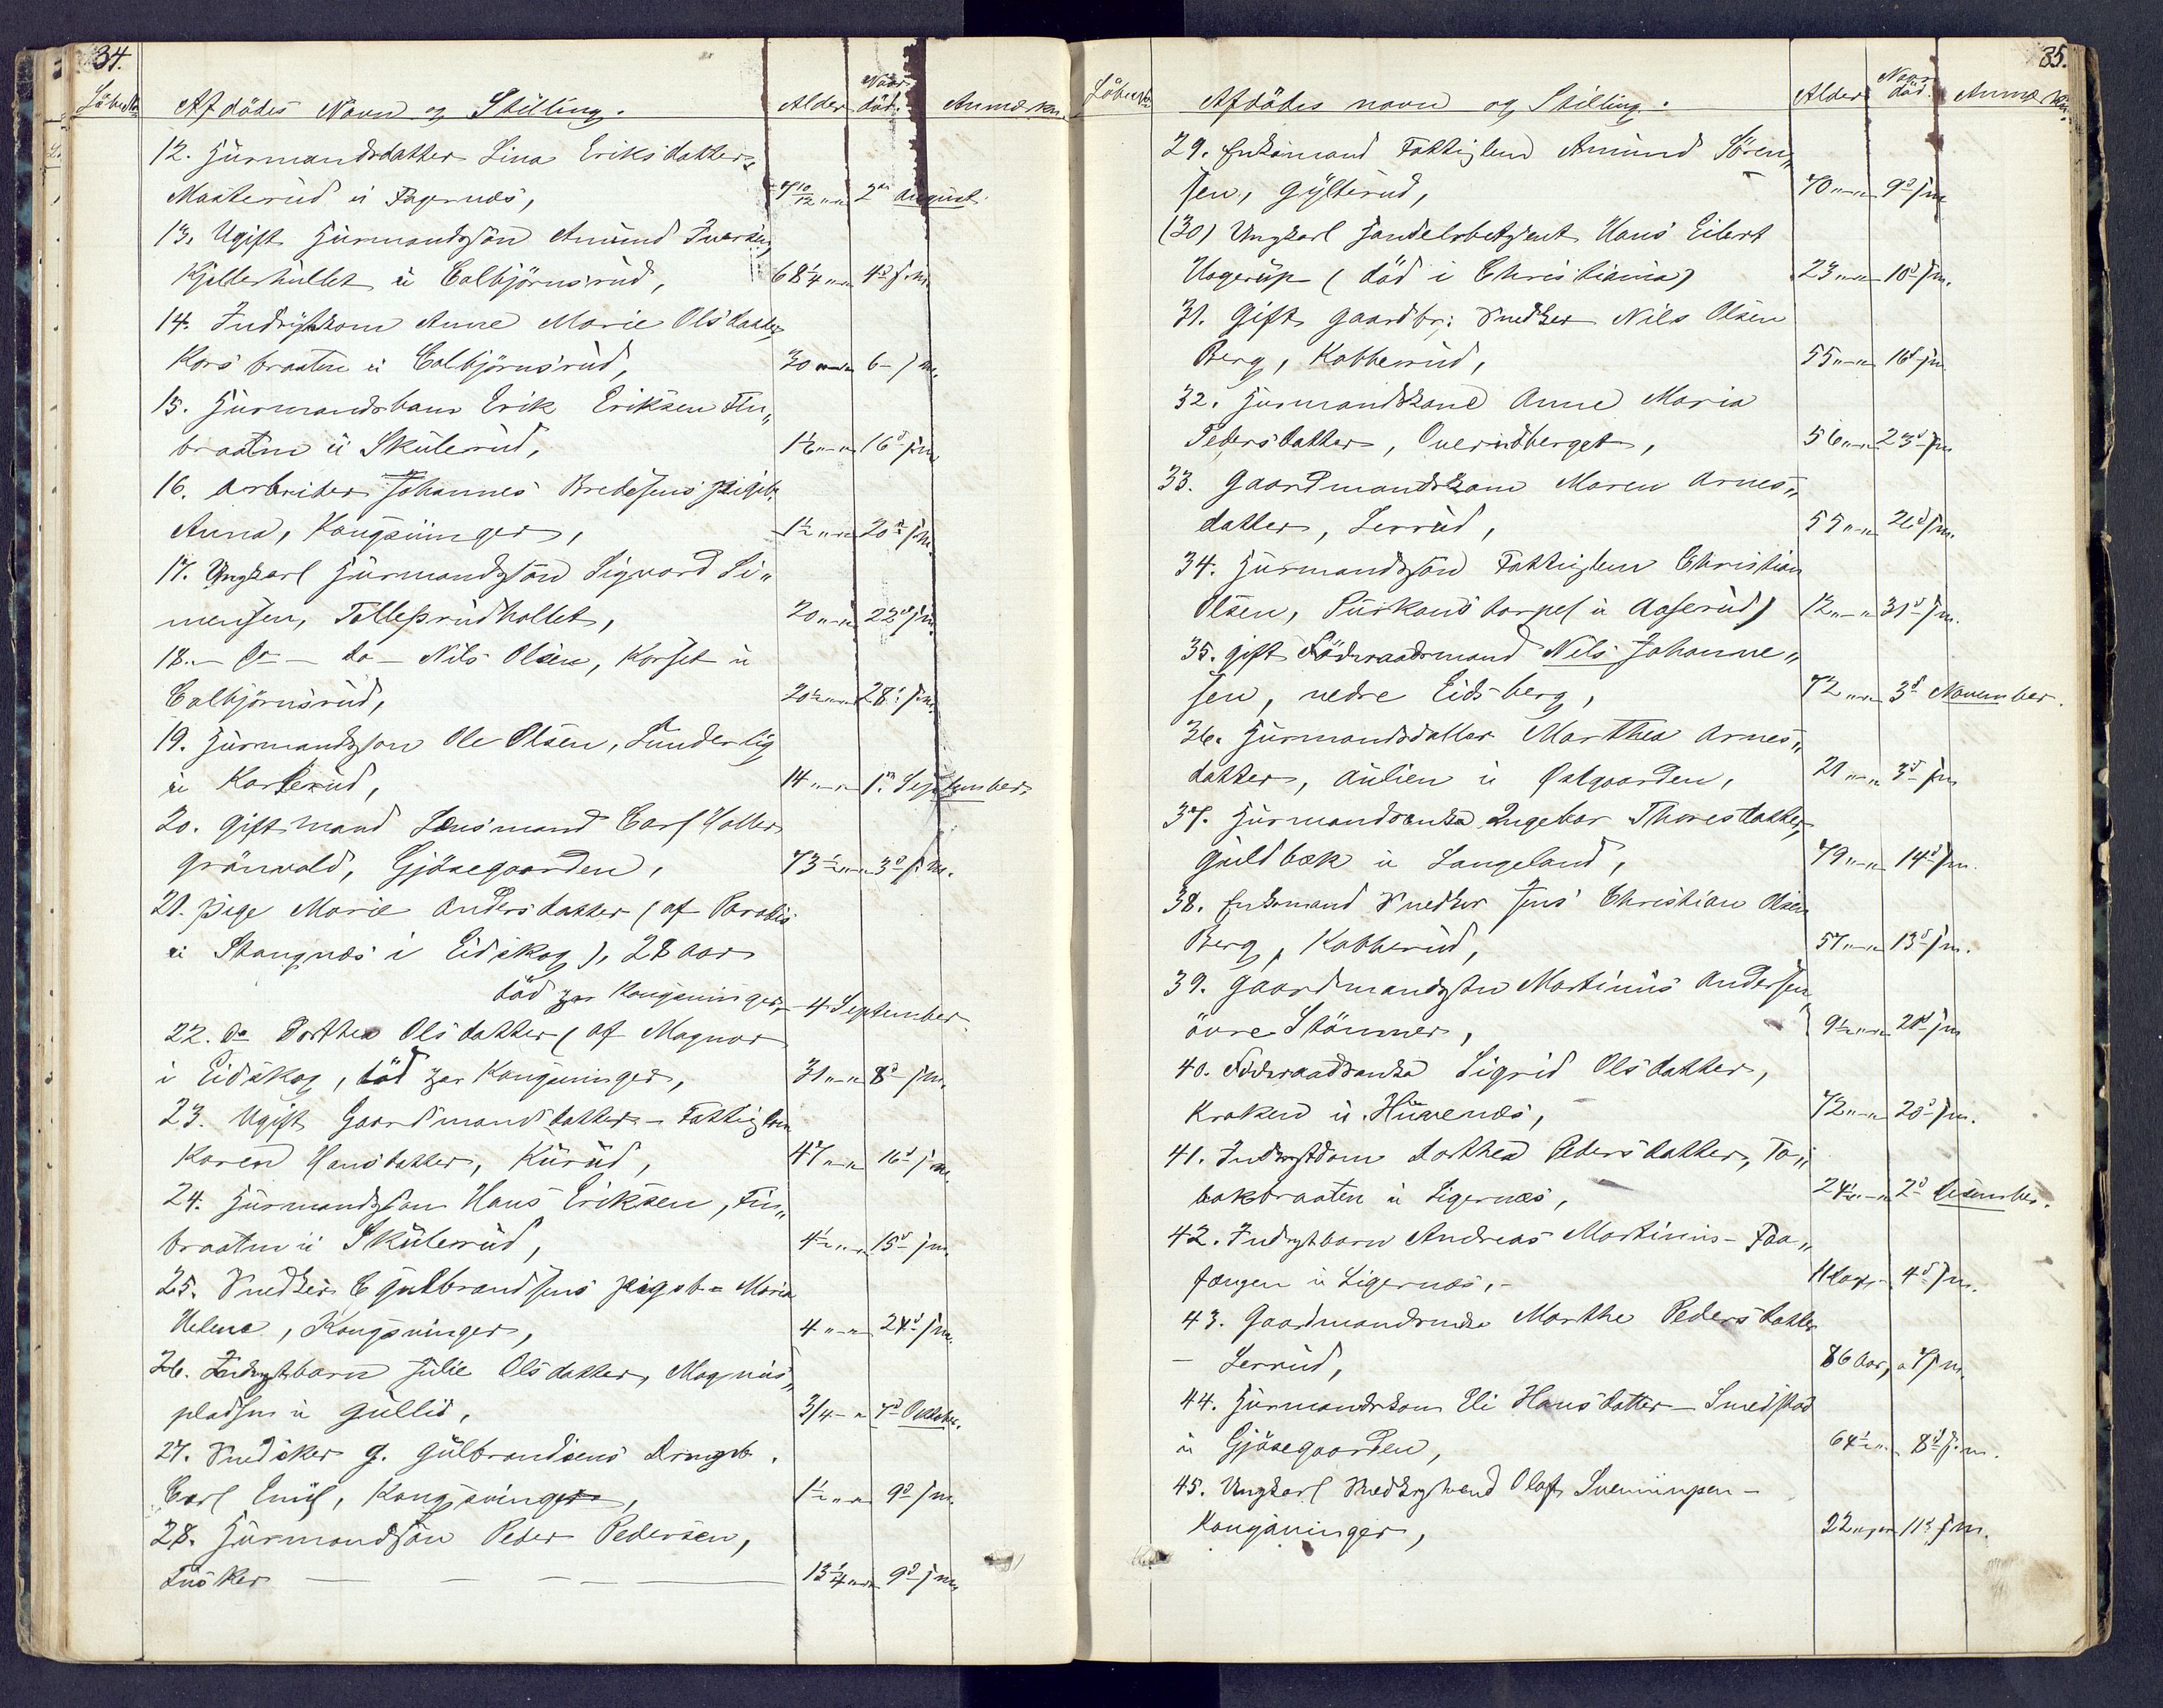 34.
Löbe No Afdödes Navn og Stilling. Alder Naar död. Anmærkn.
12. Husmandsdatter Lina Eriksdatter,
Masterud u Fagernæs, 7 10/12 " " 2den August.
13. Ugift Husmandssön Amund Iversen,
Kjelderhullet u Colbjörnsrud, 68 1/4 " " 4d s.m.
14. Inderstkone Anne Marie Olsdatter,
Korsbraaten u Colbjörnsrud, 30 " " 6 - s.m.
15. Husmandsbarn Erik Eriksen Fin"
braaten u Skulerud, 1 1/2 " " 16d s.m.
16. Arbeider Johannes Bredesens Pigeb.
Anna, Kongsvinger, 1 1/2 " " 20d s.m.
17. Ungkarl Husmandssön Sigvard Si"
mensen, Tollefsrudhollet, 20 " " 22d s.m.
18. - Do - do - Nils Olsen, Korset u
Colbjörnsrud, 20 1/2 " " 28d s.m.
19. Husmandssön Ole Olsen, Lunderlig
u Karterud, 14 " " 1st September
20. Gift Mand Lensmand Carl Holler
Grönvold, Gjösegaarden, 73 1/2 " " 3d s.m.
21. Pige Marie Andersdatter (af Paradis
u Stangnæs i Eidskog), 28 aar
död paa Kongsvinger, - 4 September.
22. Do Dorthea Olsdatter (af Magnor
i Eidskog, död paa Kongsvinger, 31 " " 8d s.m.
23. Ugift Gaardmandsdatter - Fattiglem
Karen Hansdatter, Kurud, 47 " " 16d s.m.
24. Husmandssön Hans Eriksen, Fin"
braaten u Skulerud, 4 1/2 " " 15d s.m.
25. Snedker C Gulbrandsens pigeb - Maria
Helene, Kongsvinger, 4 " " 24d s.m.
26. Inderstbarn Julie Olsdatter, Magnus"
pladsen u Gullid, 3/4 - " 7d Oktober.
27. Snedsker G. Gulbrandsens Drengb.
Carl Emil, Kongsvinger, 1 1/2 " " 9d s.m.
28. Husmandssön Peder Pedersen,
Tusker — — — — 13 1/4 " " 9d s.m.
35.
Löbe No Afdödes navn og Stilling. Alder Naar död. Anmærkn.
29. Enkemand Fattiglem Amund Sören"
sen, Gylterud, 70 " " 9d s.m.
(30) Ungkarl Handelsbetjent Hans Eilert
Ugerup (död i Christiania) 23 " " 10d s.m.
31. Gift Gaardbr: Snedker Nils Olsen
Berg, Kabberud, 55 " " 16d s.m.
32. Husmandskone Anne Maria
Pedersdatter, Overudberget, 56 " " 23d s.m.
33. Gaardmandskone Maren Arnes"
datter, Lerrud, 55 " " 26d s.m.
34. Husmandssön Fattiglem Christian
Olsen, Puskanstorpet u Aaserud) 12 " " 31d s.m.
35. gift Föderaadsmand Nils Johanne"
sen, nedre Eidsberg, 72 " " 3d November.
36. Husmandsdatter Marthea Arnes"
datter, Aulien u Dalgaarden, 21 " " 3d s.m.
37. Husmandsenke Ingebor Thoresdatter,
Guldbæk u Langeland, 79 " " 14d s.m.
38. Enkemand Snedker Jens Christian Olsen
Berg, Kabberud, 57 " " 13d s.m.
39. Gaardmandssön Martinius Andersen
övre Stömner, 9 1/2 " " 28d s.m
40. Föderaadsenke Sigrid Olsdatter,
Kraken u Huvenæs, 72 " " 20d s.m.
41. Inderstdom Dorthea Pedersdatter, To"
bakbraaten u Ligernæs, 24 1/2 " " 2d December.
42. Inderstbarn Andreas Martinius - Faa"
fangen u Ligernæs, - 11 dage - 4d s.m.
43. Gaardmandsenke Marthe Pedersdatter
- Lerrud, 86 Aar, " 7 s.m.
44. Husmandskone Eli Hansdatter - Smedstad
u Gjösegaarden, 64 1/2 " " 8d s.m.
45. Ungkarl Snedkersvend Olaf Svenningsen -
Kongsvinger, 22 " " 11d s.m.